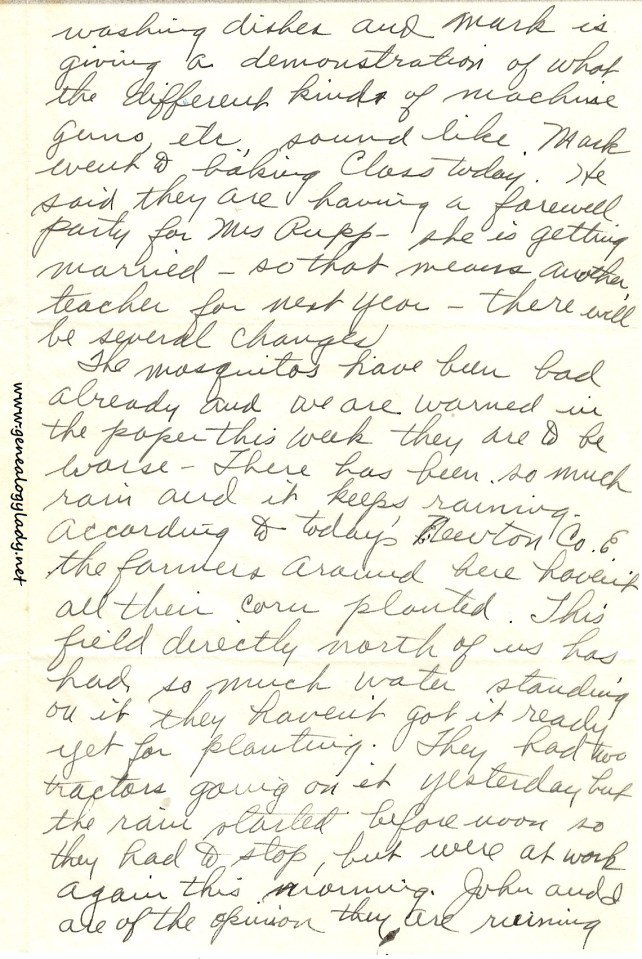 washing dishes and Mark is
giving a demonstration of what
the different kinds of machine
guns, etc. sound like. Mark
went to baking Class today. He
said they are having a farewell
party for Mrs Rupp - she is getting
married - so that means another
teacher for next year - there will
be several changes
The mosquitos have been bad
already and we are warned in
the paper this week they are to be
worse - There has been so much
rain and it keeps raining.
According to today's Newton Co. E
the farmers around here haven't
all their corn planted. This
field directly north of us has
had so much water standing
on it they haven't got it ready
yet for planting. They had two
tractors going on it yesterday but
the rain started before noon so
they had to stop, but were at work
again this morning. John and I
are of the opinion they are ruining
www.genealogylady.net